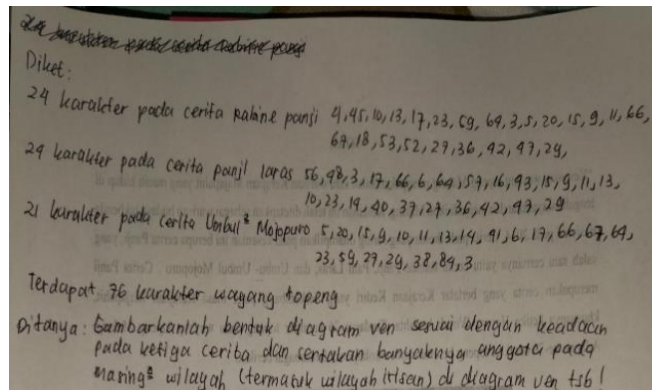 Diket:
24 karakter pada cerita Rabine panji 4,45,10,13,17,23,59,64,3,5,20,15,9,11,66,
67,18,53,52,27,36,42,47,29,
24 karakter pada carita panji laras 56,48,3,17,66,6,64,57,16,43,15,9,11,13,
10,23,14,40,37,27,36,42,47,29
21 karakter pada cerita Umbul² Mojopuro 5,20,15,9,10,11,13,14,41,6,17,66,67,64,
23,59,27,29,38,84,3
Terdapat 76 karakter wayang topeng
Ditanya: Gambarkanlah bentuk diagram ven sesuai dengan keadaan
pada ketiga cerita dan sertakan banyaknya anggota pada
masing² wilayah (termasuk wilayah irisan) di diagram ven tsb!